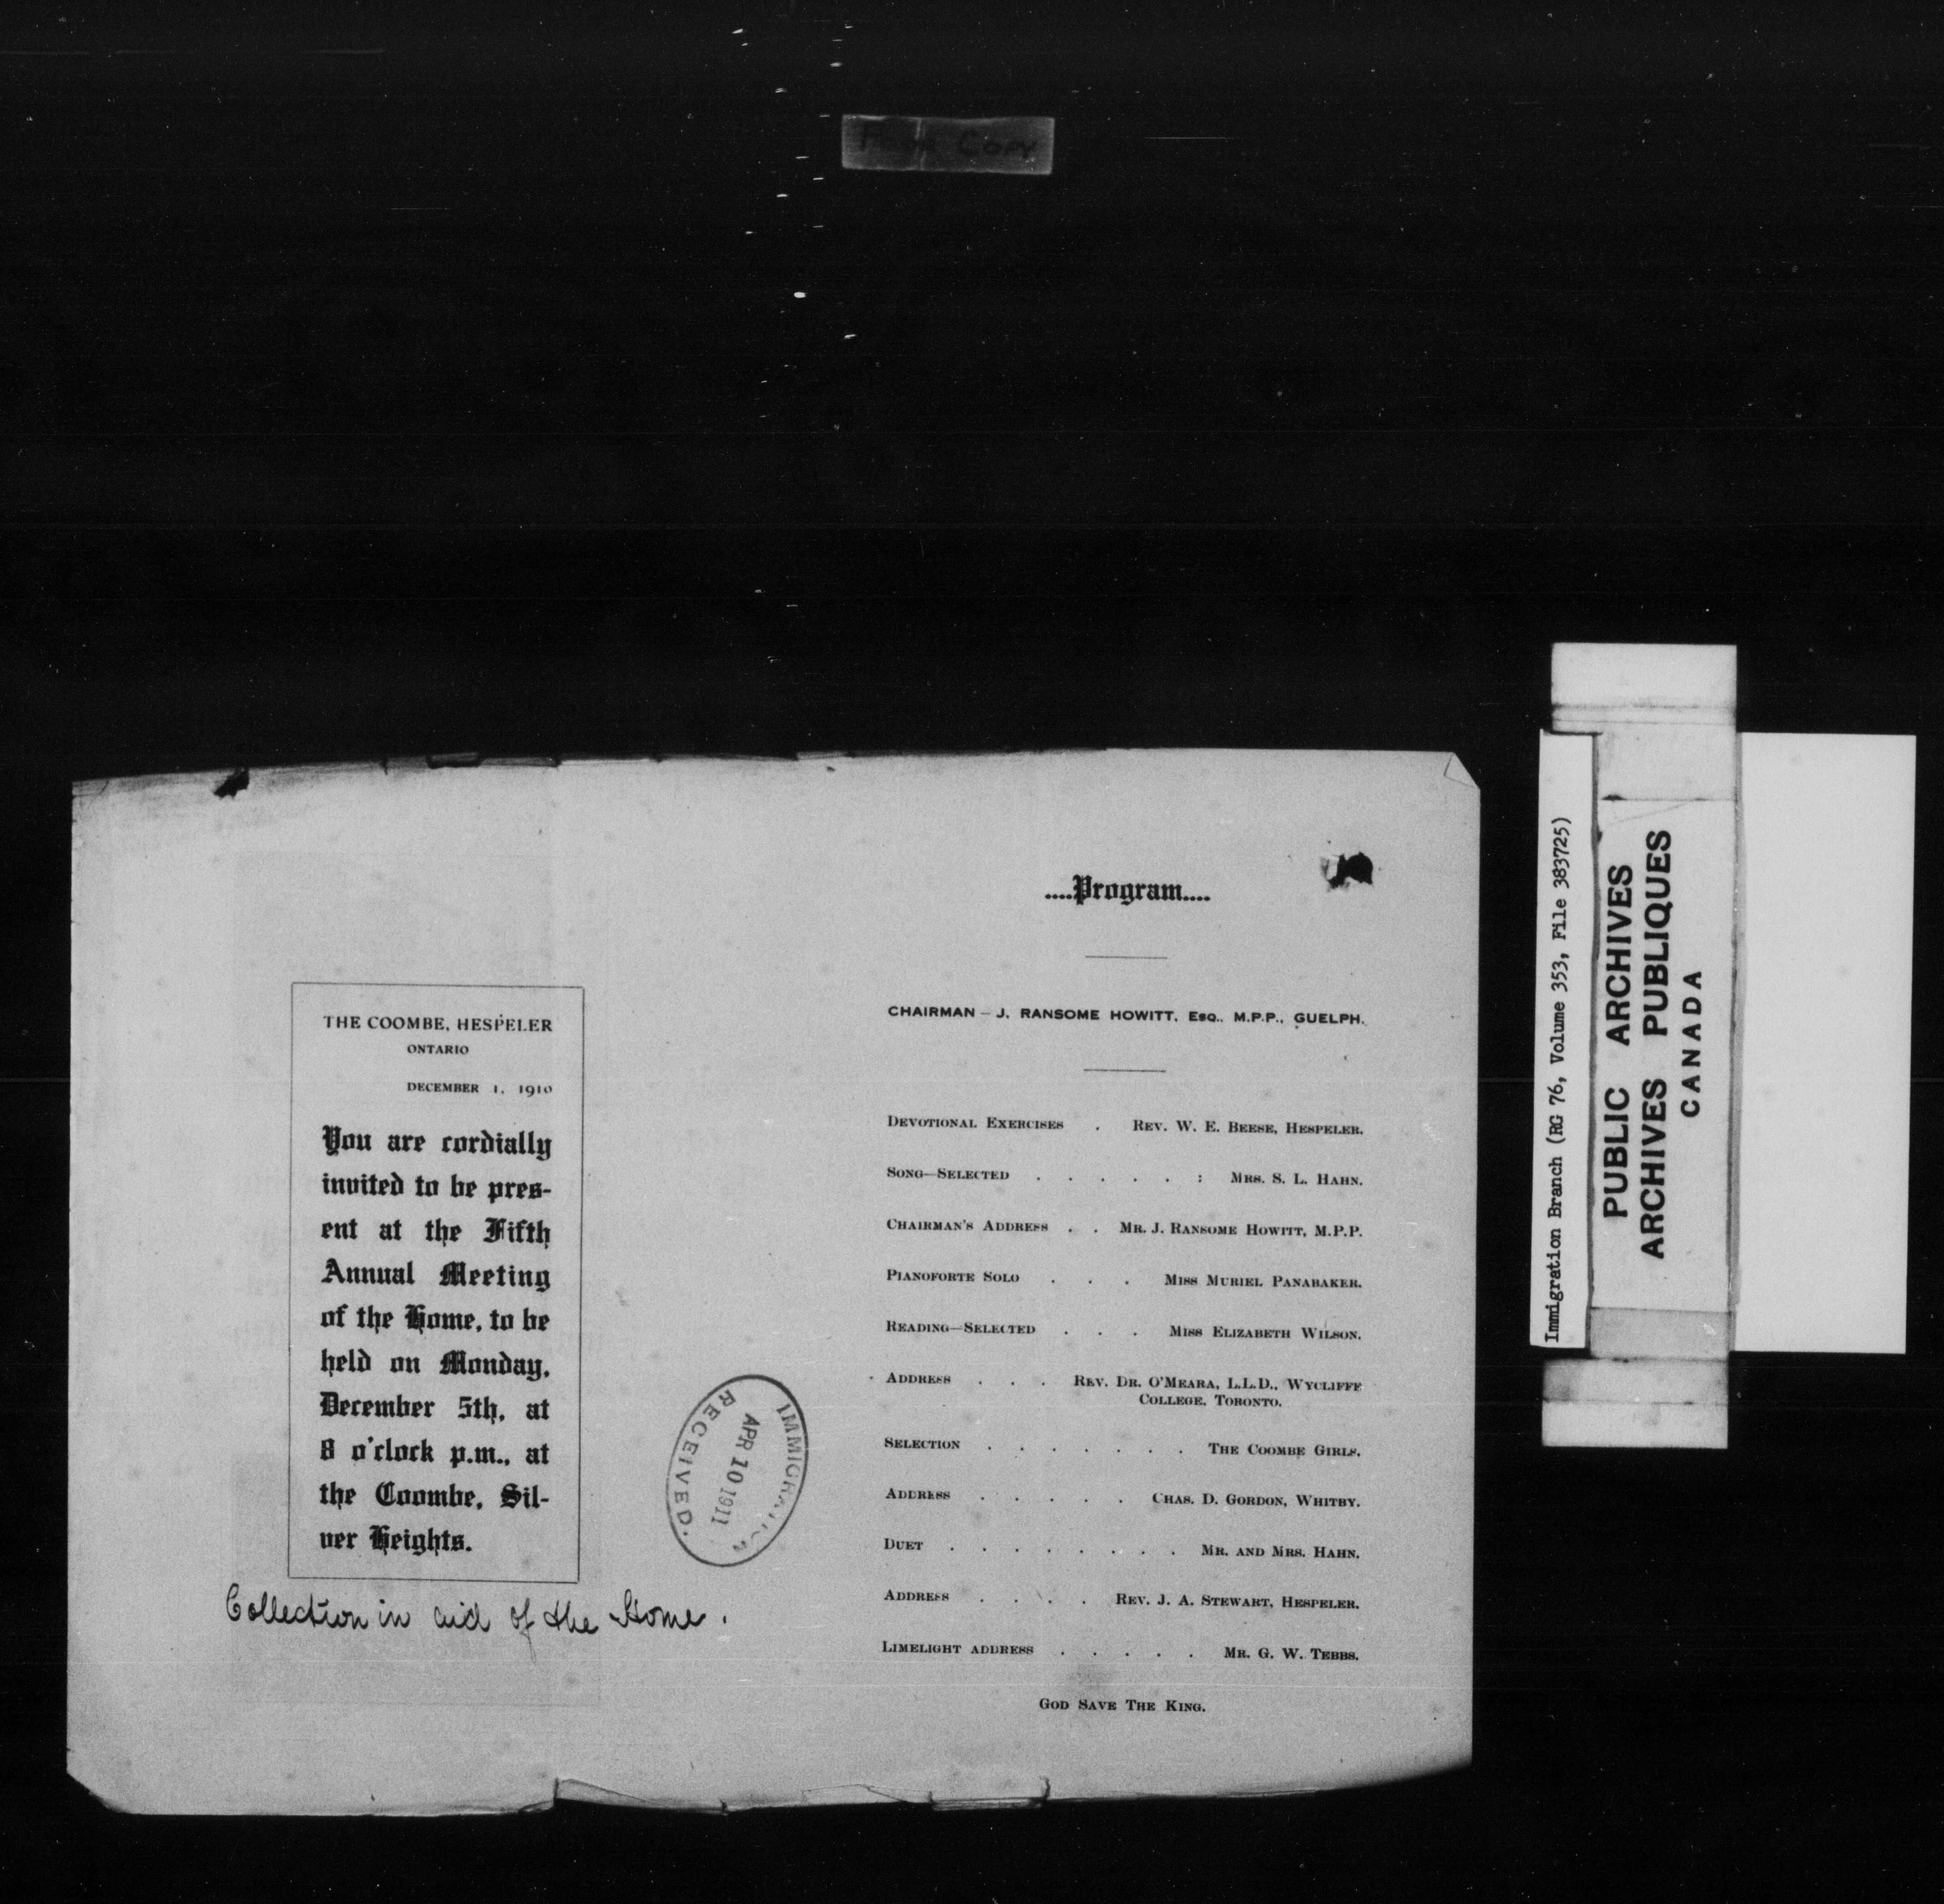 Poor Copy
THE COOMBE, HESPELER
ONTARIO
DECEMBER 1, 1910
You are cordially
invited to be pres-
ent at the Fifth
Annual Meeting
of the Home, to be
held on Monday,
December 5th, at
8 o'clock p.m., at
the Coombe, Sil-
ver Heights.
Collection in aid of the Home.
IMMIGRATION
APR 10 1911
RECEIVED.
....Program....
CHAIRMAN – J. RANSOME HOWITT, Esq., M.P.P., GUELPH.
DEVOTIONAL EXERCISES . REV. W. E. BEESE, HESPELER.
SONG—SELECTED . . . . . : MRS. S. L. HAHN.
CHAIRMAN'S ADDRESS . . MR. J. RANSOME HOWITT, M.P.P.
PIANOFORTE SOLO . . . MISS MURIEL PANABAKER.
READING—SELECTED . . . MISS ELIZABETH WILSON.
ADDRESS . . . REV. DR. O'MEARA, L.L.D., WYCLIFFE
COLLEGE, TORONTO.
SELECTION . . . . . . . THE COOMBE GIRLS.
ADDRESS . . . . . CHAS. D. GORDON, WHITBY.
DUET . . . . . . . . MR. AND MRS. HAHN.
ADDRESS . . . . REV. J. A. STEWART, HESPELER.
LIMELIGHT ADDRESS . . . . . MR. G. W. TEBBS.
GOD SAVE THE KING.
Immigration Branch (RG 76, Volume 353, File 383725)
PUBLIC ARCHIVES
ARCHIVES PUBLIQUES
CANADA